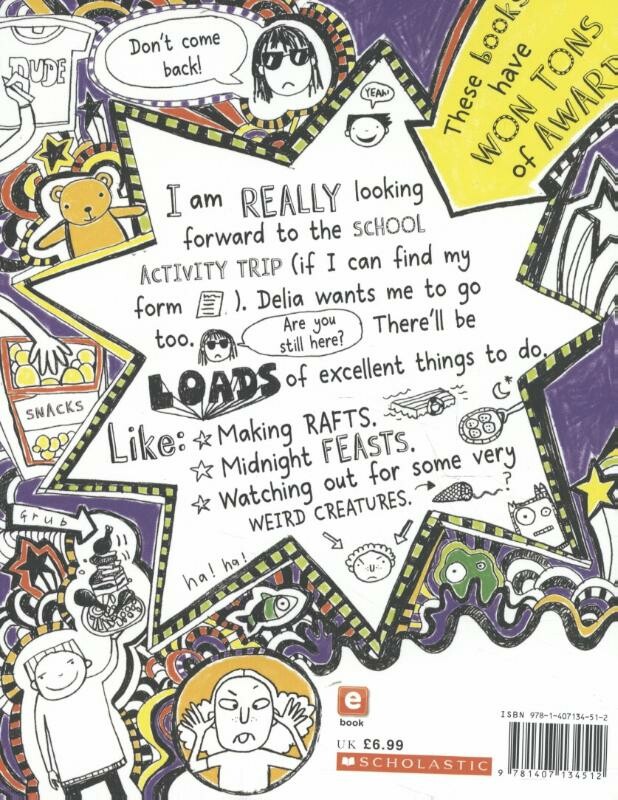 DUDE
Don't come
back!
These books
have
WON TONS
of AWARD
YEAH!
I am REALLY looking
forward to the SCHOOL
ACTIVITY TRIP (if I can find my
form ). Delia wants me to go
too. Are you
still here? There'll be
LOADS of excellent things to do.
Like: Making RAFTS.
Midnight FEASTS.
Watching out for some very
WEIRD CREATURES. ?
SNACKS
Grub
ha! ha!
e
book
UK £6.99
SCHOLASTIC
ISBN 978-1-407134-51-2
9 781407 134512